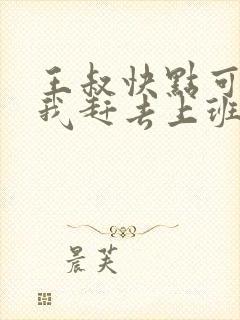 王叔快點可
我赶去上班
晨芙